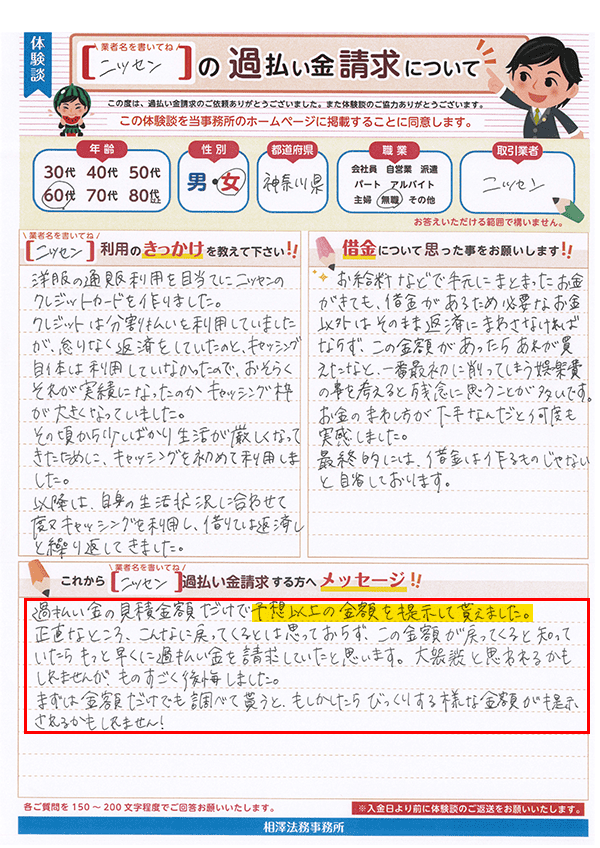 体験談
業者名を書いてね
[ニッセン]の過払い金請求について
この度は、過払い金請求のご依頼ありがとうございました。また体験談のご協力ありがとうございます。
この体験談を当事務所のホームページに掲載することに同意します。
年齢
30代 40代 50代
60代 70代 80代以上
性別
男・女
都道府県
神奈川県
職業
会社員 自営業 派遣
パート アルバイト
主婦 無職 その他
取引業者
ニッセン
お答えいただける範囲で構いません。
業者名を書いてね
[ニッセン]利用のきっかけを教えて下さい!!
洋服の通販利用を目当てにニッセンの
クレジットカードを作りました。
クレジットは分割払いを利用していました
が、怠りなく返済をしていたのと、キャッシング
自体は利用していなかったので、おそらく
それが実績になったのかキャッシング枠
が大きくなっていました。
その頃から少しばかり生活が厳しくなって
きたために、キャッシングを初めて利用しま
した。
以降は、自身の生活状況に合わせて
度々キャッシングを利用し、借りては返済し
と繰り返してきました。
借金について思った事をお願いします!!
お給料などで手元にまとまったお金
ができても、借金があるため必要なお金
以外はそのまま返済にまわさなければ
ならず、この金額があったらあれが買
えたなと、一番最初に削ってしまう娯楽費
の事を考えると残念に思うことが多いです。
お金のまわし方が下手なんだと何度も
実感しました。
最終的には、借金は作るものじゃない
と自省しております。
業者名を書いてね
これから[ニッセン]過払い金請求する方へメッセージ!!
過払い金の見積金額だけで予想以上の金額を提示して貰えました。
正直なところ、こんなに戻ってくるとは思っておらず、この金額が戻ってくると知って
いたらもっと早くに過払い金を請求していたと思います。大袈裟と思われるかも
しれませんが、ものすごく後悔しました。
まずは金額だけでも調べて貰うと、もしかしたらびっくりする様な金額が提示
されるかもしれません!
各ご質問を150～200文字程度でご回答お願いいたします。
※入金日より前に体験談のご返送をお願いいたします。
相澤法務事務所